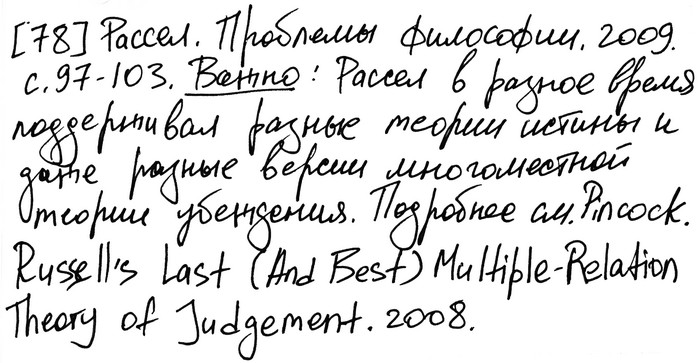 [78] Рассел. Проблемы философии. 2009.
с. 97-103. Важно: Рассел в разное время
поддерживал разные теории истины и
даже разные версии многоместной
теории убеждения. Подробнее см. Pincock.
Russell's Last (And Best) Multiple-Relation
Theory of Judgement. 2008.